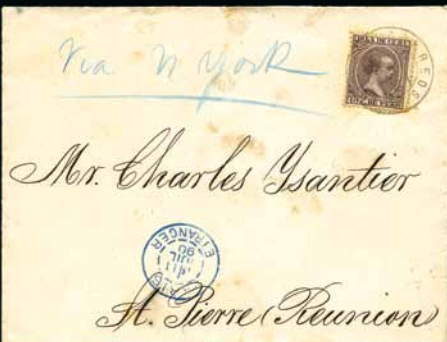 Via N York
Mr. Charles Ysantier
ETRANGER
11
JUIL
90
St. Pierre (Reunion)